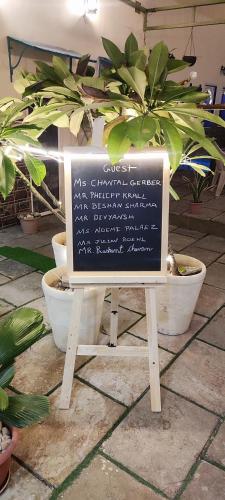 Guest
Ms CHANTAL GERBER
MR PHILIPP KRALL
MR BISHAN SHARMA
MR DIVYANSH
Ms NOEMIE PALAEZ
Ms JULIAN ROEHL
MR. Prashant